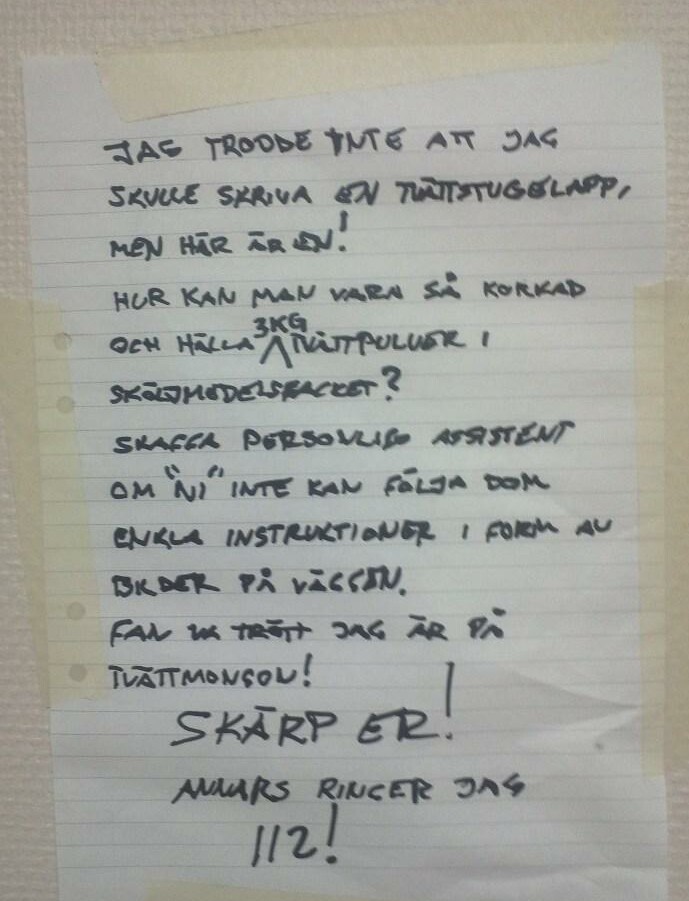 JAG TRODDE INTE ATT JAG
SKULLE SKRIVA EN TVÄTTSTUGELAPP,
MEN HÄR ÄR EN!
HUR KAN MAN VARA SÅ KORKAD
OCH HÄLLA 3KG TVÄTTPULVER I
SKÖLJMEDELSFACKET?
SKAFFA PERSONLIG ASSISTENT
OM "NI" INTE KAN FÖLJA DOM
ENKLA INSTRUKTIONER I FORM AV
BILDER PÅ VÄGGEN.
FAN VA TRÖTT JAG ÄR PÅ
TVÄTTMONGON!
SKÄRP ER!
ANNARS RINGER JAG
112!